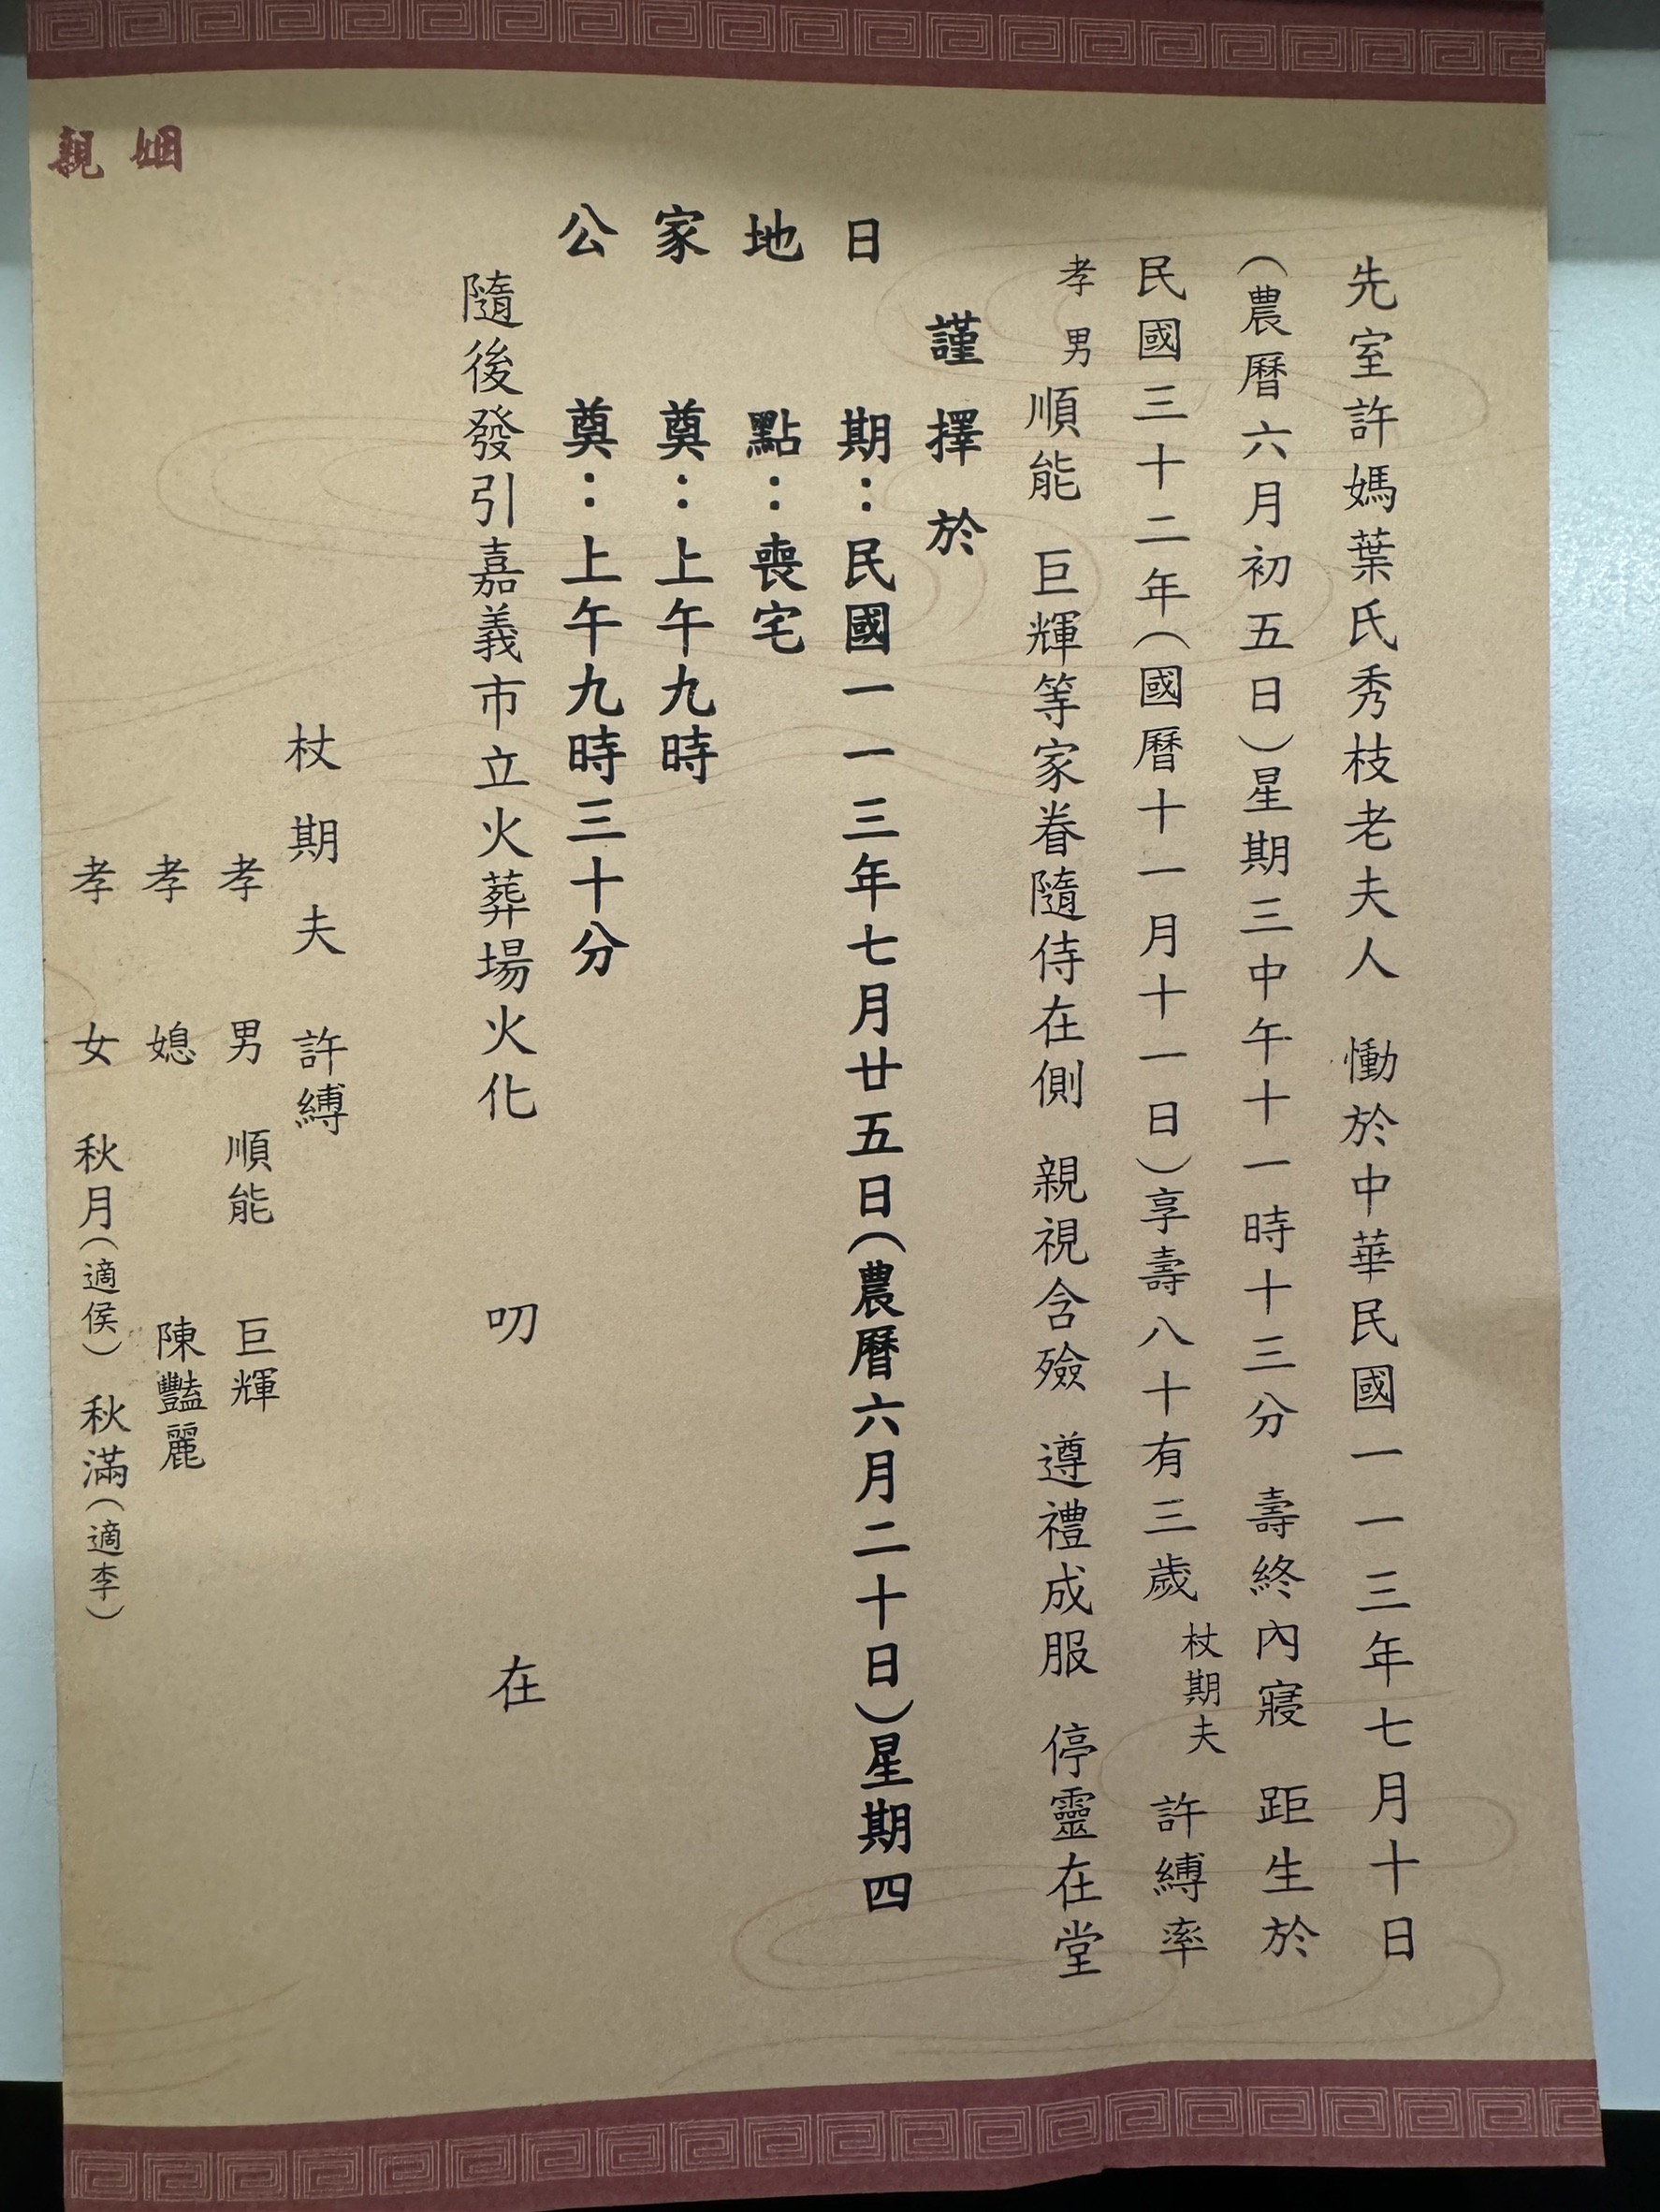 先室許媽葉氏秀枝老夫人　慟於中華民國一一三年七月十日
（農曆六月初五日）星期三中午十一時十三分　壽終內寢　距生於
民國三十二年（國曆十一月十一日）享壽八十有三歲　杖期夫　許縛率
孝男順能　巨輝等家眷隨侍在側　親視含殮　遵禮成服　停靈在堂
謹擇於
日期：民國一一三年七月廿五日（農曆六月二十日）星期四
地點：喪宅
家奠：上午九時
公奠：上午九時三十分
隨後發引嘉義市立火葬場火化　叨　在
杖期夫　許縛
孝男　順能　巨輝
孝媳　陳豔麗
孝女　秋月（適侯）　秋滿（適李）
姻親